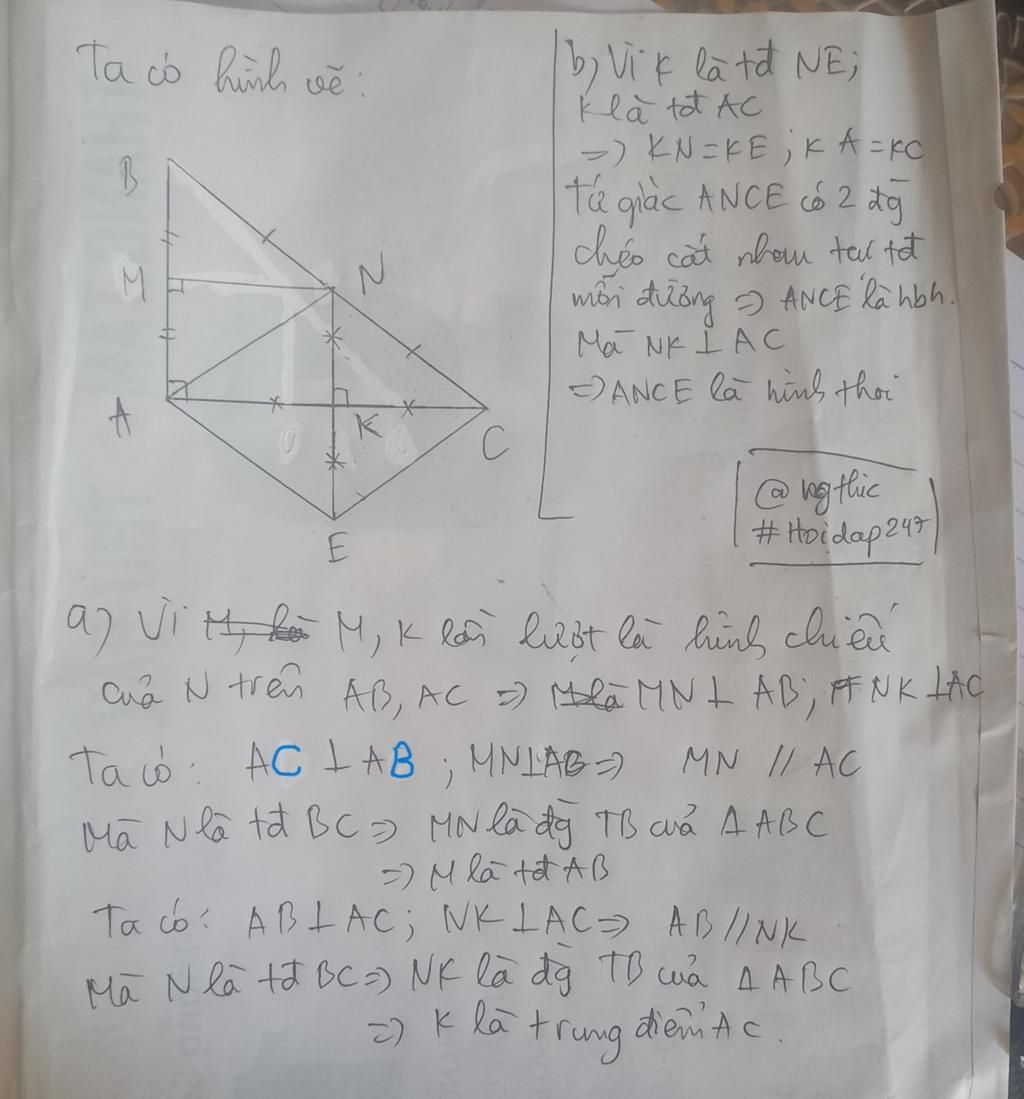 Ta có hình vẽ:
B
M
N
A
K
C
E
b) Vì K là tđ NE;
K là tđ AC
=> KN = KE ; KA = KC
Tứ giác ANCE có 2 đg
chéo cắt nhau tại tđ
mỗi đường => ANCE là hbh.
Mà NK ⊥ AC
=> ANCE là hình thoi
@ngthuc
#Hoidap247
a) Vì M, K lần lượt là hình chiếu
của N trên AB, AC => MN ⊥ AB; NK ⊥ AC
Ta có: AC ⊥ AB ; MN ⊥ AB => MN // AC
Mà N là tđ BC => MN là đg TB của Δ ABC
=> M là tđ AB
Ta có: AB ⊥ AC; NK ⊥ AC => AB // NK
Mà N là tđ BC => NK là đg TB của Δ ABC
=> K là trung điểm AC.